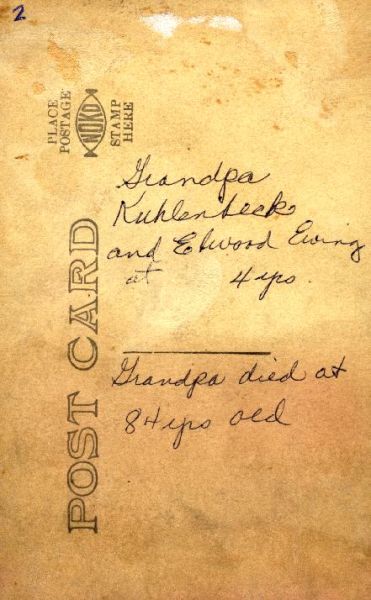 2
PLACE
POSTAGE
NOKO
STAMP
HERE
POST CARD
Grandpa
Kuhlenbeck
and Elwood Ewing
at 4 yrs
Grandpa died at
84 yrs old